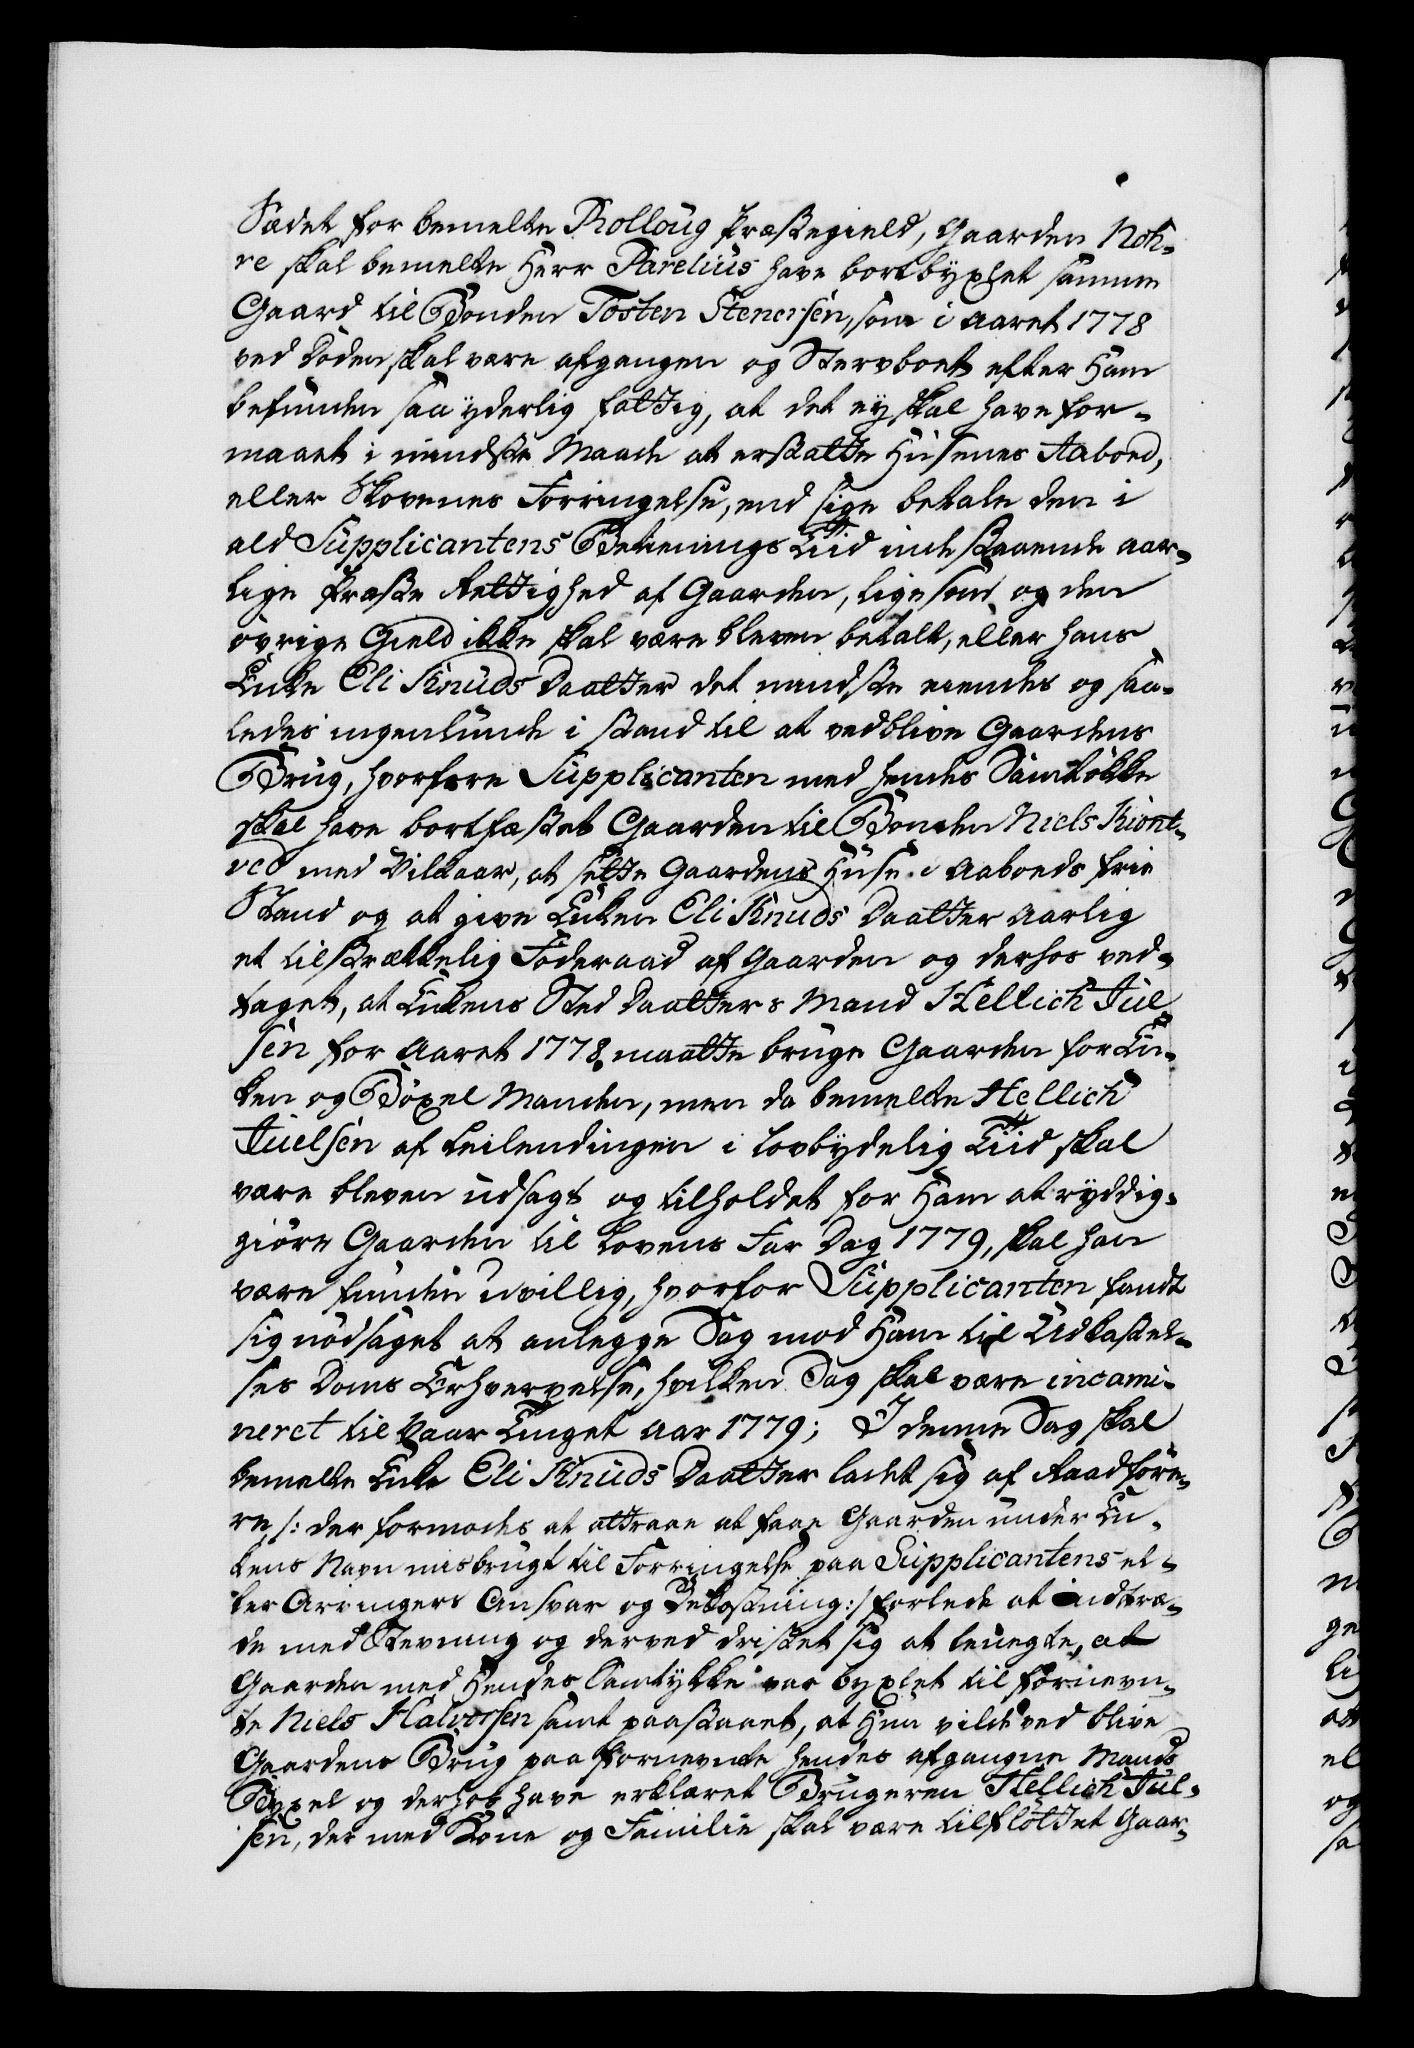 Sædet for bemelte Rolloug Præstegield, Gaarden Noh-
re skal bemelte Herr Parelius have bortbyxlet samme
Gaard til Bonden Tosten Stenersen, som i Aaret 1778
ved Døden skal være afgangen og Stervboet efter Ham
befunden saa yderlig fattig, at det ey skal have for-
maaet i mindste Maade at erstatte Husenes Aaboed,
eller Skovenes Forringelse, end sige betale den i
ald Supplicantens Betienings Tiid indestaaende aar-
lige Præste Rettighed af Gaarden, ligesom og den
øvrige Gield ikke skal være bleven betalt, eller hans
Enke Eli Knuds Daatter det mindste eiendes og saa-
ledes ingenlunde i stand til at vedblive Gaardens
Brug, hvorfore Supplicanten med hendes Samtøkke
skal have bortfæstet Gaarden til Bonden Niels Kiont-
ved med Vilkaar, at sætte Gaardens Huse i Aaboeds frie
Stand og at give Enken Eli Knuds Daatter Aarlig
et tilstrækkelig Føderaad af Gaarden og derhos ved-
taget, at Enkens Sted Daatters Mand Hellich Juel-
sen for Aaret 1778 maatte bruge Gaarden for En-
ken og Bøxel Manden, men da bemelte Hellich
Juelsen af Leilendingen i lovbydelig Tiid skal
være bleven udsagt og tilholdet for Ham at ryddig-
giøre Gaarden til Lovens Far Dag 1779, skal han
være funden uvillig, hvorfor Supplicanten fandt
sig nødsaget at anlegge Sag mod Ham til Udkastel-
ses Doms Erhvervelse, hvilken Sag skal være incami-
neret til Vaar Tinget Aar 1779; I denne Sag skal
bemelte Enke Eli Knuds Daatter ladet sig af Raadføre-
re /: der formodes at attraae at faae Gaarden under En-
kens Navn misbrugt til Forringelse paa Supplicantens el-
ler Arvingers Ansvar og Bekostning :/ forlede at indtræ-
de med Stevning og derved dristet sig at benegte, at
Gaarden med Hendes Samtykke var byxlet til fornevn-
te Niels Halvorsen samt paastaaet, at Hun vilde ved blive
Gaardens Brug paa fornevnte hendes afgangne Mands
Byxel og derhos have erklæret Brugeren Hellich Juel-
sen, der med Kone og Familie skal være tilfløttet Gaar-